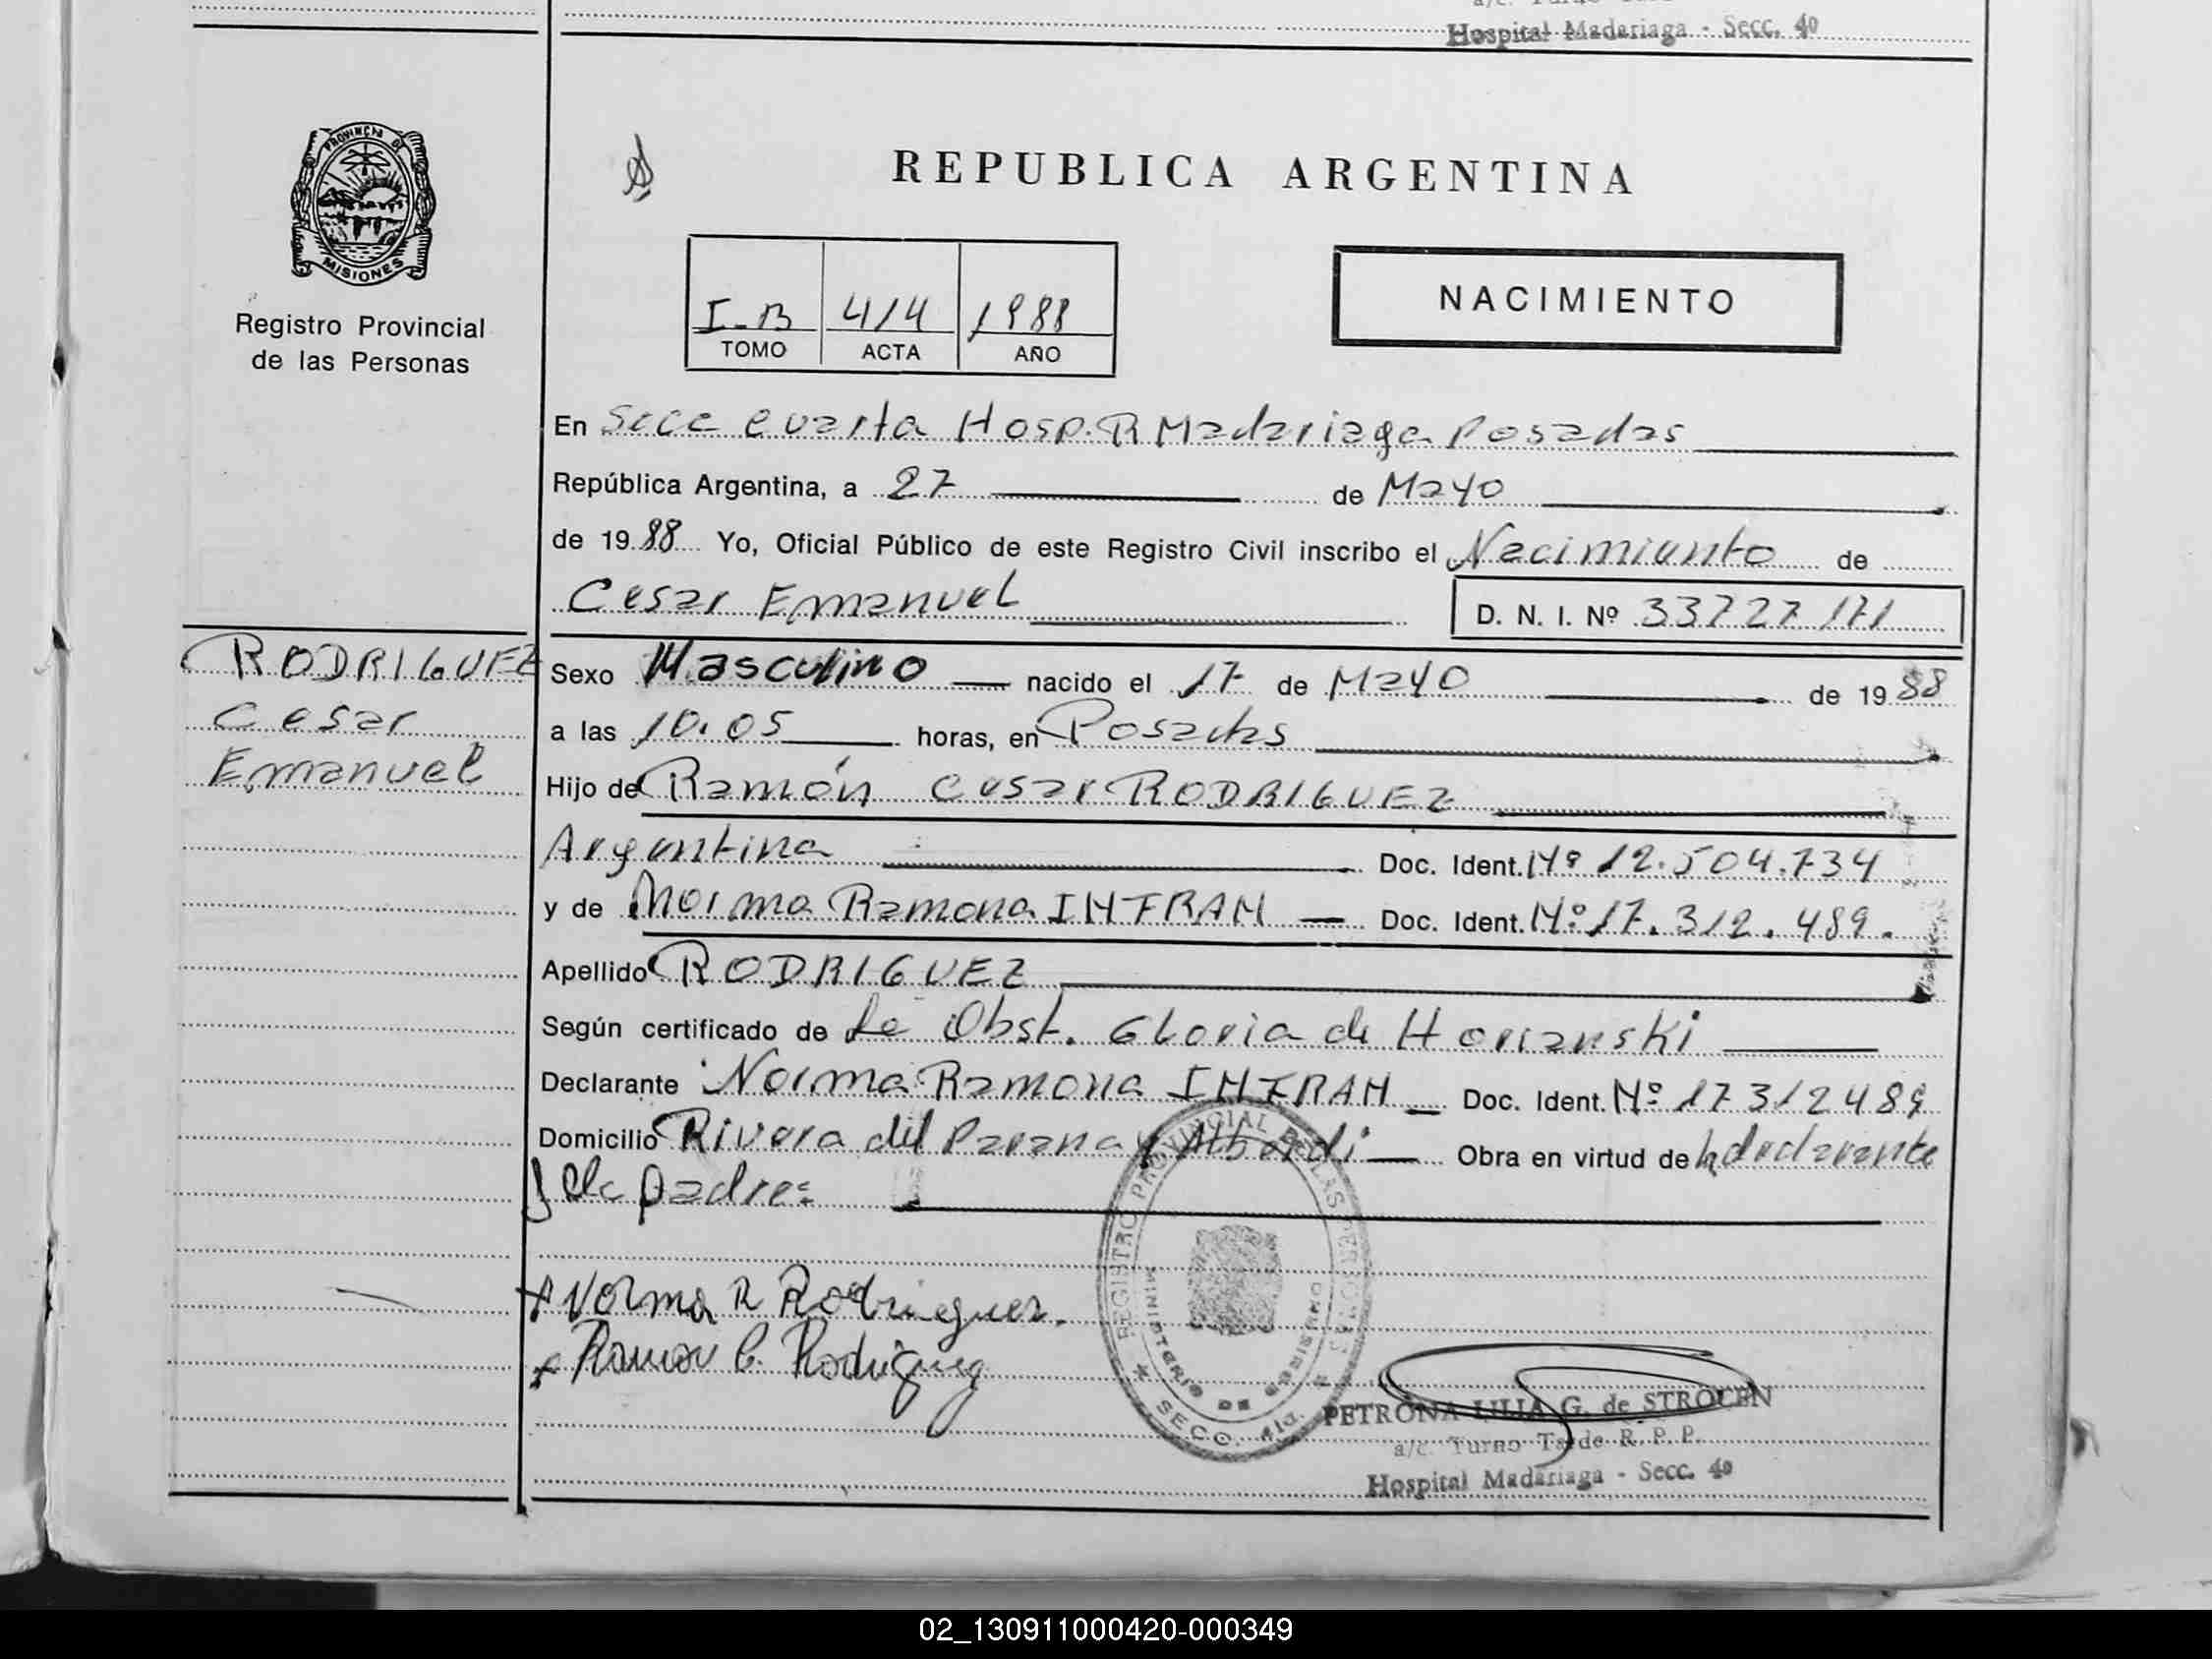 Hospital Madariaga - Secc. 4º
PROVINCIA DE
MISIONES
Registro Provincial
de las Personas
REPUBLICA ARGENTINA
I-B 414 1988
TOMO ACTA AÑO
NACIMIENTO
En Secc cuarta Hosp. R Madariaga Posadas
República Argentina, a 27 de Mayo
de 1988 Yo, Oficial Público de este Registro Civil inscribo el Nacimiento de
Cesar Emanuel D. N. I. Nº 33727171
RODRIGUEZ
Cesar
Emanuel
Sexo Masculino nacido el 17 de Mayo de 1988
a las 10.05 horas, en Posadas
Hijo de Ramón Cesar RODRIGUEZ
Argentina Doc. Ident. Nº 12.504.734
y de Norma Ramona INFRAN Doc. Ident. Nº 17.312.489.
Apellido RODRIGUEZ
Según certificado de La Obst. Gloria de
Declarante Norma Ramona INFRAN Doc. Ident. Nº 17312489
Domicilio Rivera del Parana y Alberdi Obra en virtud de la declarante
y del padre
x Norma R Rodriguez.
x Ramon C. Rodriguez
REGISTRO PROVINCIAL DE LAS PERSONAS
MINISTERIO DE GOBIERNO
SECC. 4ta.
PETRONA LILIA G. de STROCEN
a/c. Turno Tarde R. P. P.
Hospital Madariaga - Secc. 4º
02_130911000420-000349